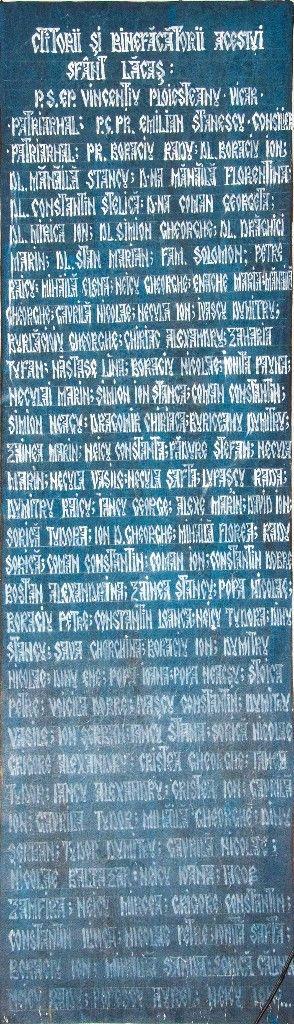 CTITORII ȘI BINEFĂCĂTORII ACESTUI
SFÂNT LĂCAȘ:
P.S.EP. VINCENȚIU PLOIEȘTEANU VICAR
PATRIARHAL; P.C.PR. EMILIAN STANESCU CONSILIER
PATRIARHAL; PR. BORACIU RADU; DL. BORACIU ION;
DL. MĂNĂILĂ STANCU; D-NA MĂNĂILĂ FLORENTINA
DL. CONSTANTIN STELICĂ; D-NA COMAN GEORGETA;
DL. NIȚICA ION; DL. SIMION GHEORGHE; DL. DRĂGHICI
MARIN; DL. STAN MARIAN; FAM. SOLOMON; PETRE
RAICU; MIHĂILĂ ELENA; NEICU GHEORGHE; ENACHE MARIA-MĂNĂILĂ
GHEORGHE; GAVRILĂ NICOLAE; NECULA ION; IVAȘCU DUMITRU;
GHEORGHE; CHIRIAC ALEXANDRU; ZAHARIA
TUFAN; NĂSTASE LINA; BORACIU NICOLAE; IONIȚĂ PAUNA;
NECULAI MARIN; SIMION ION STANCA; COMAN CONSTANTIN;
SIMION NEAGU; DRAGOMIR CHIRIACA; BURICEANU DUMITRU;
ZAINEA MARIN; NEICU CONSTANTA; PĂDURE ȘTEFAN; NECULA
MARIN; NECULA VASILE; NECULA SAFTA; LUPAȘCU RADA;
DUMITRU RAICU; IANCU GEORGE; ALEXE MARIN; DAVID ION;
SORICĂ TUDORA; ION D. GHEORGHE; MIHĂILĂ FLOREA; RADU
SORICĂ; COMAN CONSTANTIN; COMAN ION; CONSTANTIN DOBRE
BOȘTAN ALEXANDRINA; ZAINEA STANCU; POPA NICOLAE;
BORACIU PETRE; CONSTANTIN IOANCA; NEICU TUDORA; DINU
STANCU; SAVA GHERGHINA; BORACIU ION; DUMITRU
NICOLAE; DINU ENE; POPA IOANA; POPA NEAGU; STOICA
PETRE; VOICILA DOBRE; IVAȘCU CONSTANTIN; DUMITRU
VASILE; ION; IANCU STANA; SORICĂ NICOLAE
GRIGORE ALEXANDRU; CRISTEA GHEORGHE; IANCU
TUDOR; IANCU ALEXANDRU; CRISTEA ION; GAVRILĂ
ION; GAVRILĂ TUDOR; MIHĂILĂ GHEORGHE; DINU
TUDOR DUMITRU; GAVRILĂ NICOLAE;
NICOLAE BALTAZAR; NEICU IOANA; IACOB
ZAMFIRA; NEICU MIRCEA; GRIGORE CONSTANTIN;
CONSTANTIN ILINCA; NICOLAE PETRE; IONIȚĂ SAFTA;
BORACIU ION; MIHĂILĂ SORICĂ
NEICU